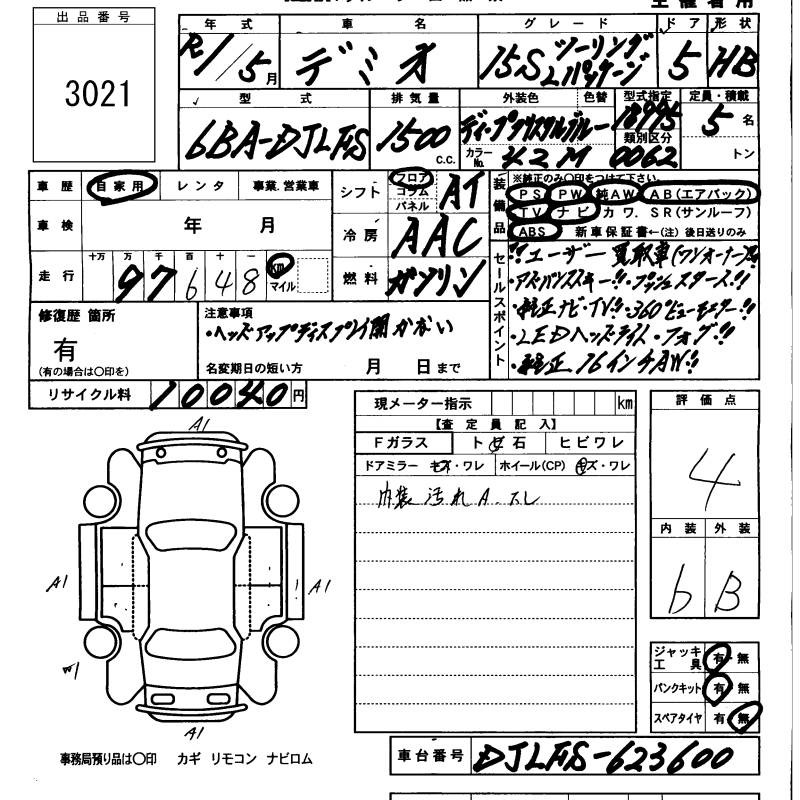 出品番号
3021
年式 車名 グレード ドア 形状
R1/5月 デミオ 15S ツーリング Lパッケージ 5 HB
型式 排気量 外装色 色替 型式指定 定員・積載
6BA-DJLFS 1500 c.c. ディープクリスタルブルー 18975 5 名
カラーNo. 42M 類別区分 0062 トン
車歴 自家用 レンタ 事業.営業車 シフト フロア コラム パネル AT
装備品 ※純正のみ○印をつけて下さい。
PS PW 純AW AB(エアバック)
TV ナビ カワ. SR(サンルーフ)
ABS 新車保証書←(注)後日送りのみ
車検 年 月 冷房 AAC
走行 十万 万 千 百 十 一 km マイル
97648
燃料 ガソリン
セールスポイント
!!ユーザー買取車(ワンオーナー)!!
・アドバンスキー!!・プッシュスタート!!
・純正ナビ・TV!!・360°ビューモニター!!
・LEDヘッドライト・フォグ!!
・純正16インチAW!!
修復歴 箇所
有
(有の場合は○印を)
注意事項
・ヘッズアップディスプレイ開かない
名変期日の短い方 月 日まで
リサイクル料 10040円
現メーター指示 km
【査定員記入】
Fガラス トビ石 ヒビワレ
ドアミラー キズ・ワレ ホイール(CP) キズ・ワレ
内装汚れA.スレ
評価点
4
内装 外装
b B
A1
A1
A1
W1
A1
ジャッキ工具 有・無
パンクキット 有 無
スペアタイヤ 有 無
事務局預り品は○印 カギ リモコン ナビロム
車台番号 DJLFS-623600